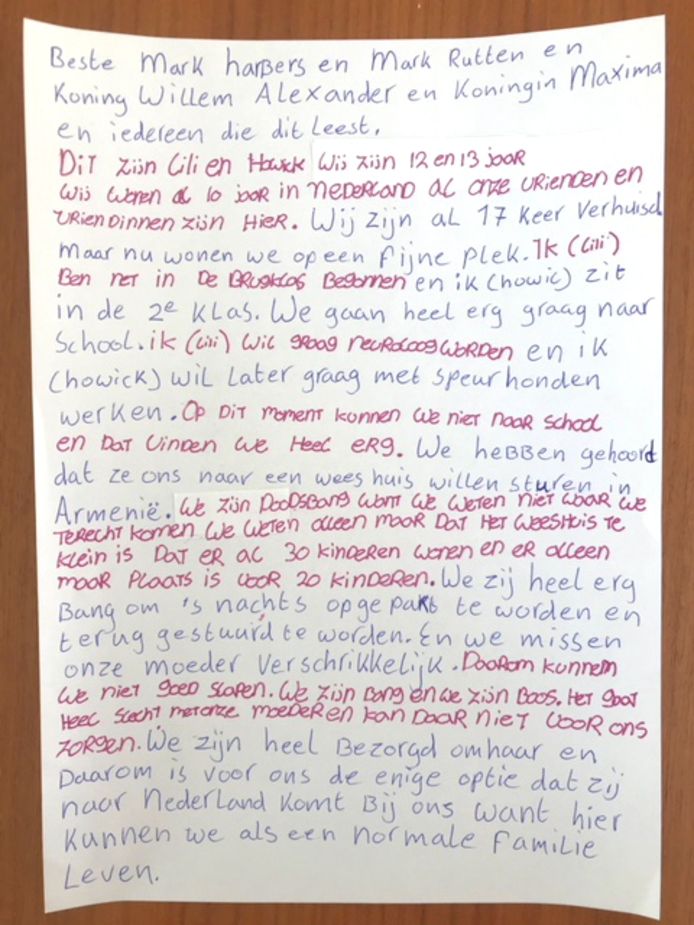 Beste Mark harBers en Mark Rutten en
Koning Willem Alexander en Koningin Maxima
en iedereen die dit Leest.
Dit zijn Lili en Howick Wij zijn 12 en 13 jaar
Wij wonen al 10 jaar in nederland al onze vrienden en
vriendinnen zijn Hier. Wij zijn aL 17 keer verhuisd
maar nu wonen we op een fijne plek. Ik (Lili)
Ben net in de Brugklas Begonnen en ik (howic) zit
in de 2e kLas. We gaan heel erg graag naar
School. ik (Lili) wil graag neuroloog worden en ik
(howick) wil Later graag met speurhonden
werken. Op dit moment kunnen we niet naar school
en dat vinden we Heel erg. We heBBen gehoord
dat ze ons naar een weeshuis willen sturen in
Armenië. We zijn doodsbang want we weten niet waar we
terecht komen we weten alleen maar dat Het weesHuis te
klein is dat er al 30 kinderen wonen en er alleen
maar plaats is voor 20 kinderen. We zij heel erg
Bang om 's nachts opgepakt te worden en
terug gestuurd te worden. En we missen
onze moeder verschrikkelijk. Daarom kunnen
we niet goed slapen. We zijn bang en we zijn Boos. Het gaat
Heel slecht met onze moeder en kan daar niet voor ons
zorgen. We zijn heel Bezorgd om haar en
Daarom is voor ons de enige optie dat zij
naar nederLand komt Bij ons want hier
kunnen we als een normale familie
Leven.